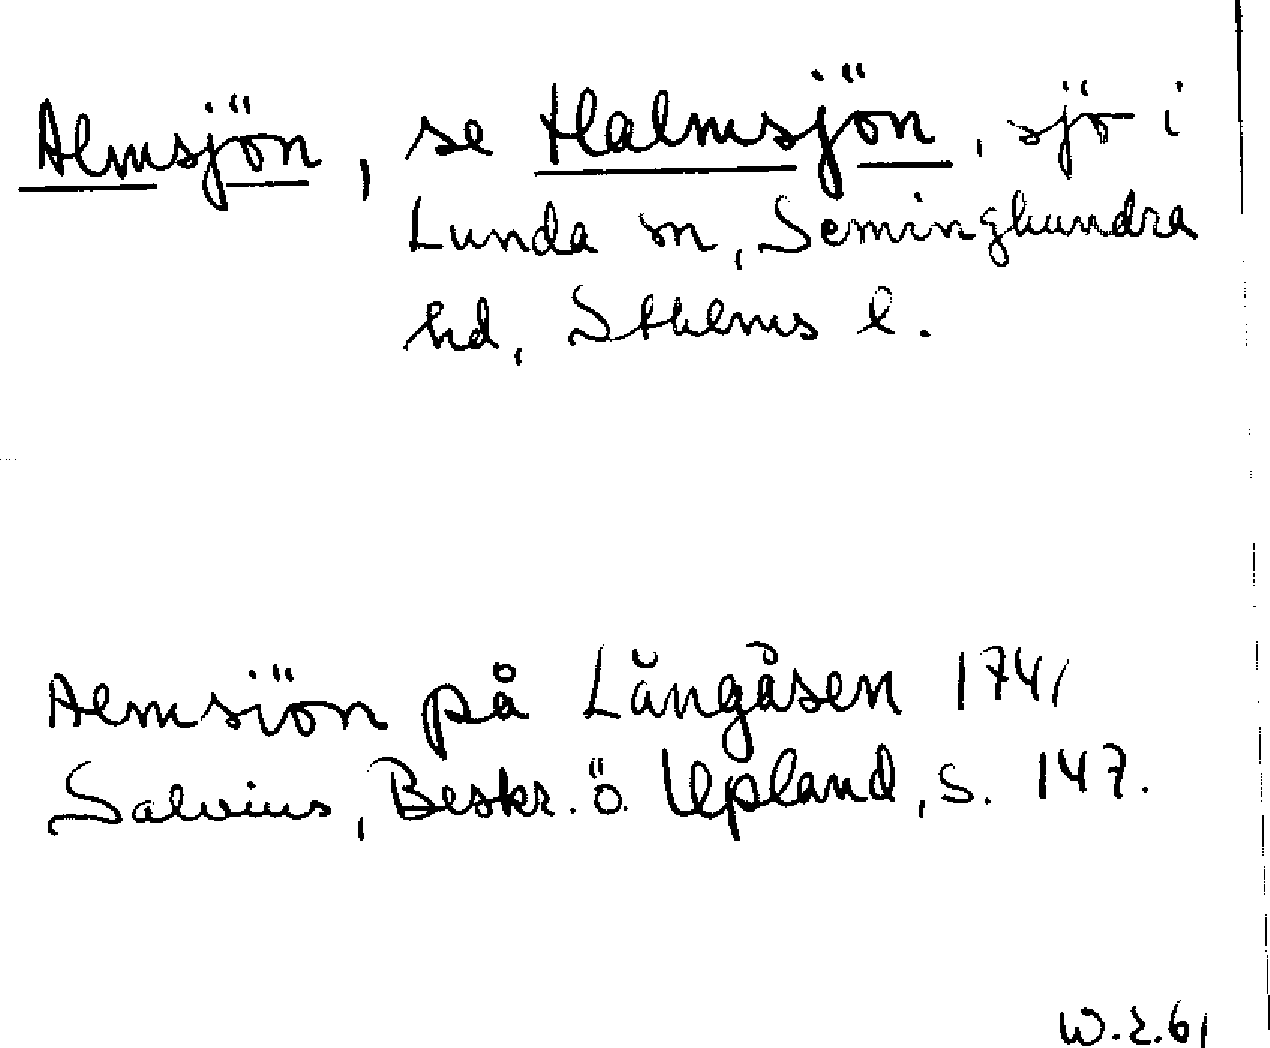 Almsjön, se Halmsjön, sjö i
Lunda sn, Seminghundra
hd, Sthlms l.
Almsiön på Långåsen 1741
Salvius, Beskr. ö. Upland, s. 147.
W.2.61